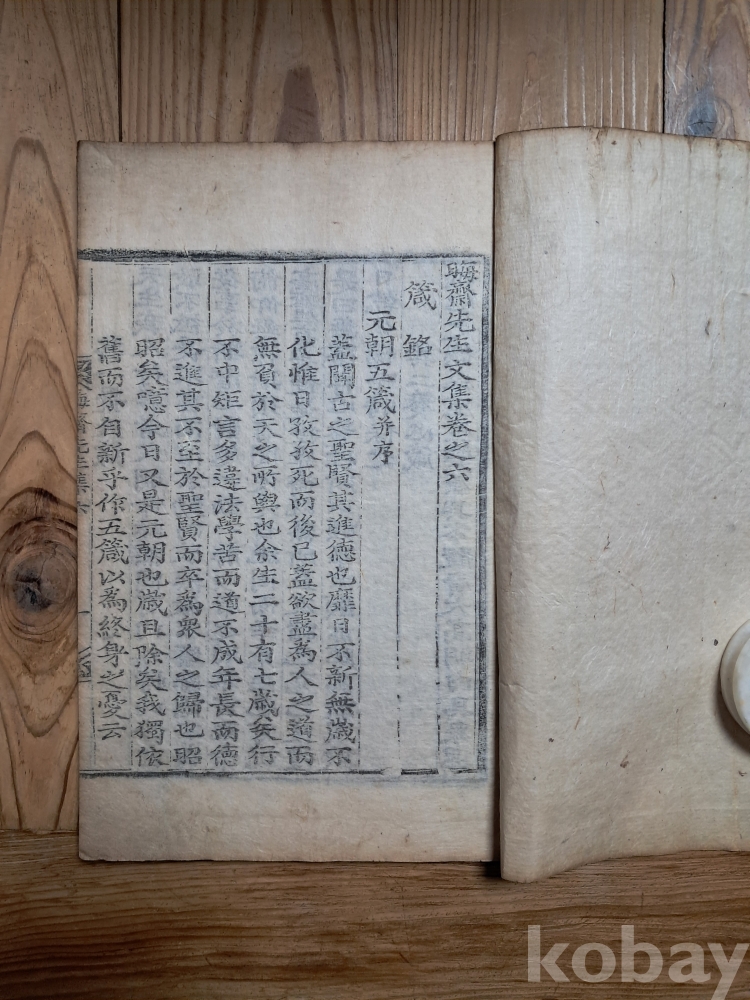 晦齋先生文集卷之六
箴銘
元朝五箴并序
蓋聞古之聖賢其進德也靡日不新無歲不
化惟日孜孜死而後已蓋欲盡爲人之道而
無負於天之所與也余生二十有七歲矣行
不中矩言多違法學苦而道不成年長而德
不進其不至於聖賢而卒爲衆人之歸也昭
昭矣噫今日又是元朝也歲且除矣我獨依
舊而不自新乎作五箴以爲終身之憂云
晦齋先生集六
kobay